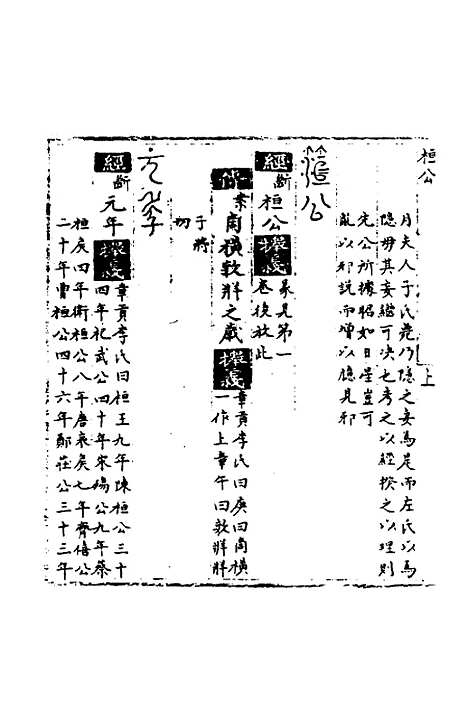 桓公
上
月夫人子氏薨乃隱之妾焉是而左氏以爲
隱母其妄繼可决也考之以經揆之以理則
先公所據昭如日星豈可
亂以邪説而增以臆見邪
桓公
經 斷 桓公 攟義 義見第一
卷後放此
索 商橫敦牂之歲 攟義 章貢李氏曰庚曰商橫
一作上章午曰敦牂牂
子將
切
元年
經 斷 元年 攟義 章貢李氏曰桓王九年陳桓公三十
四年杞武公四十年宋殤公九年蔡
桓侯四年衛桓公八年唐哀侯七年齊僖公
二十年曹桓公四十六年鄭莊公三十三年